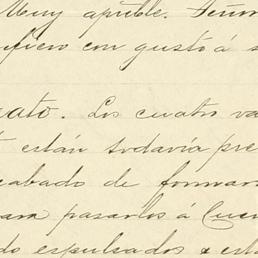 Muy apreble. Señor
fiero con gusto á s
ato. Los cuatro va
están todavía pre
cabado de formar
para pasarlos á Cuer
do espulsados